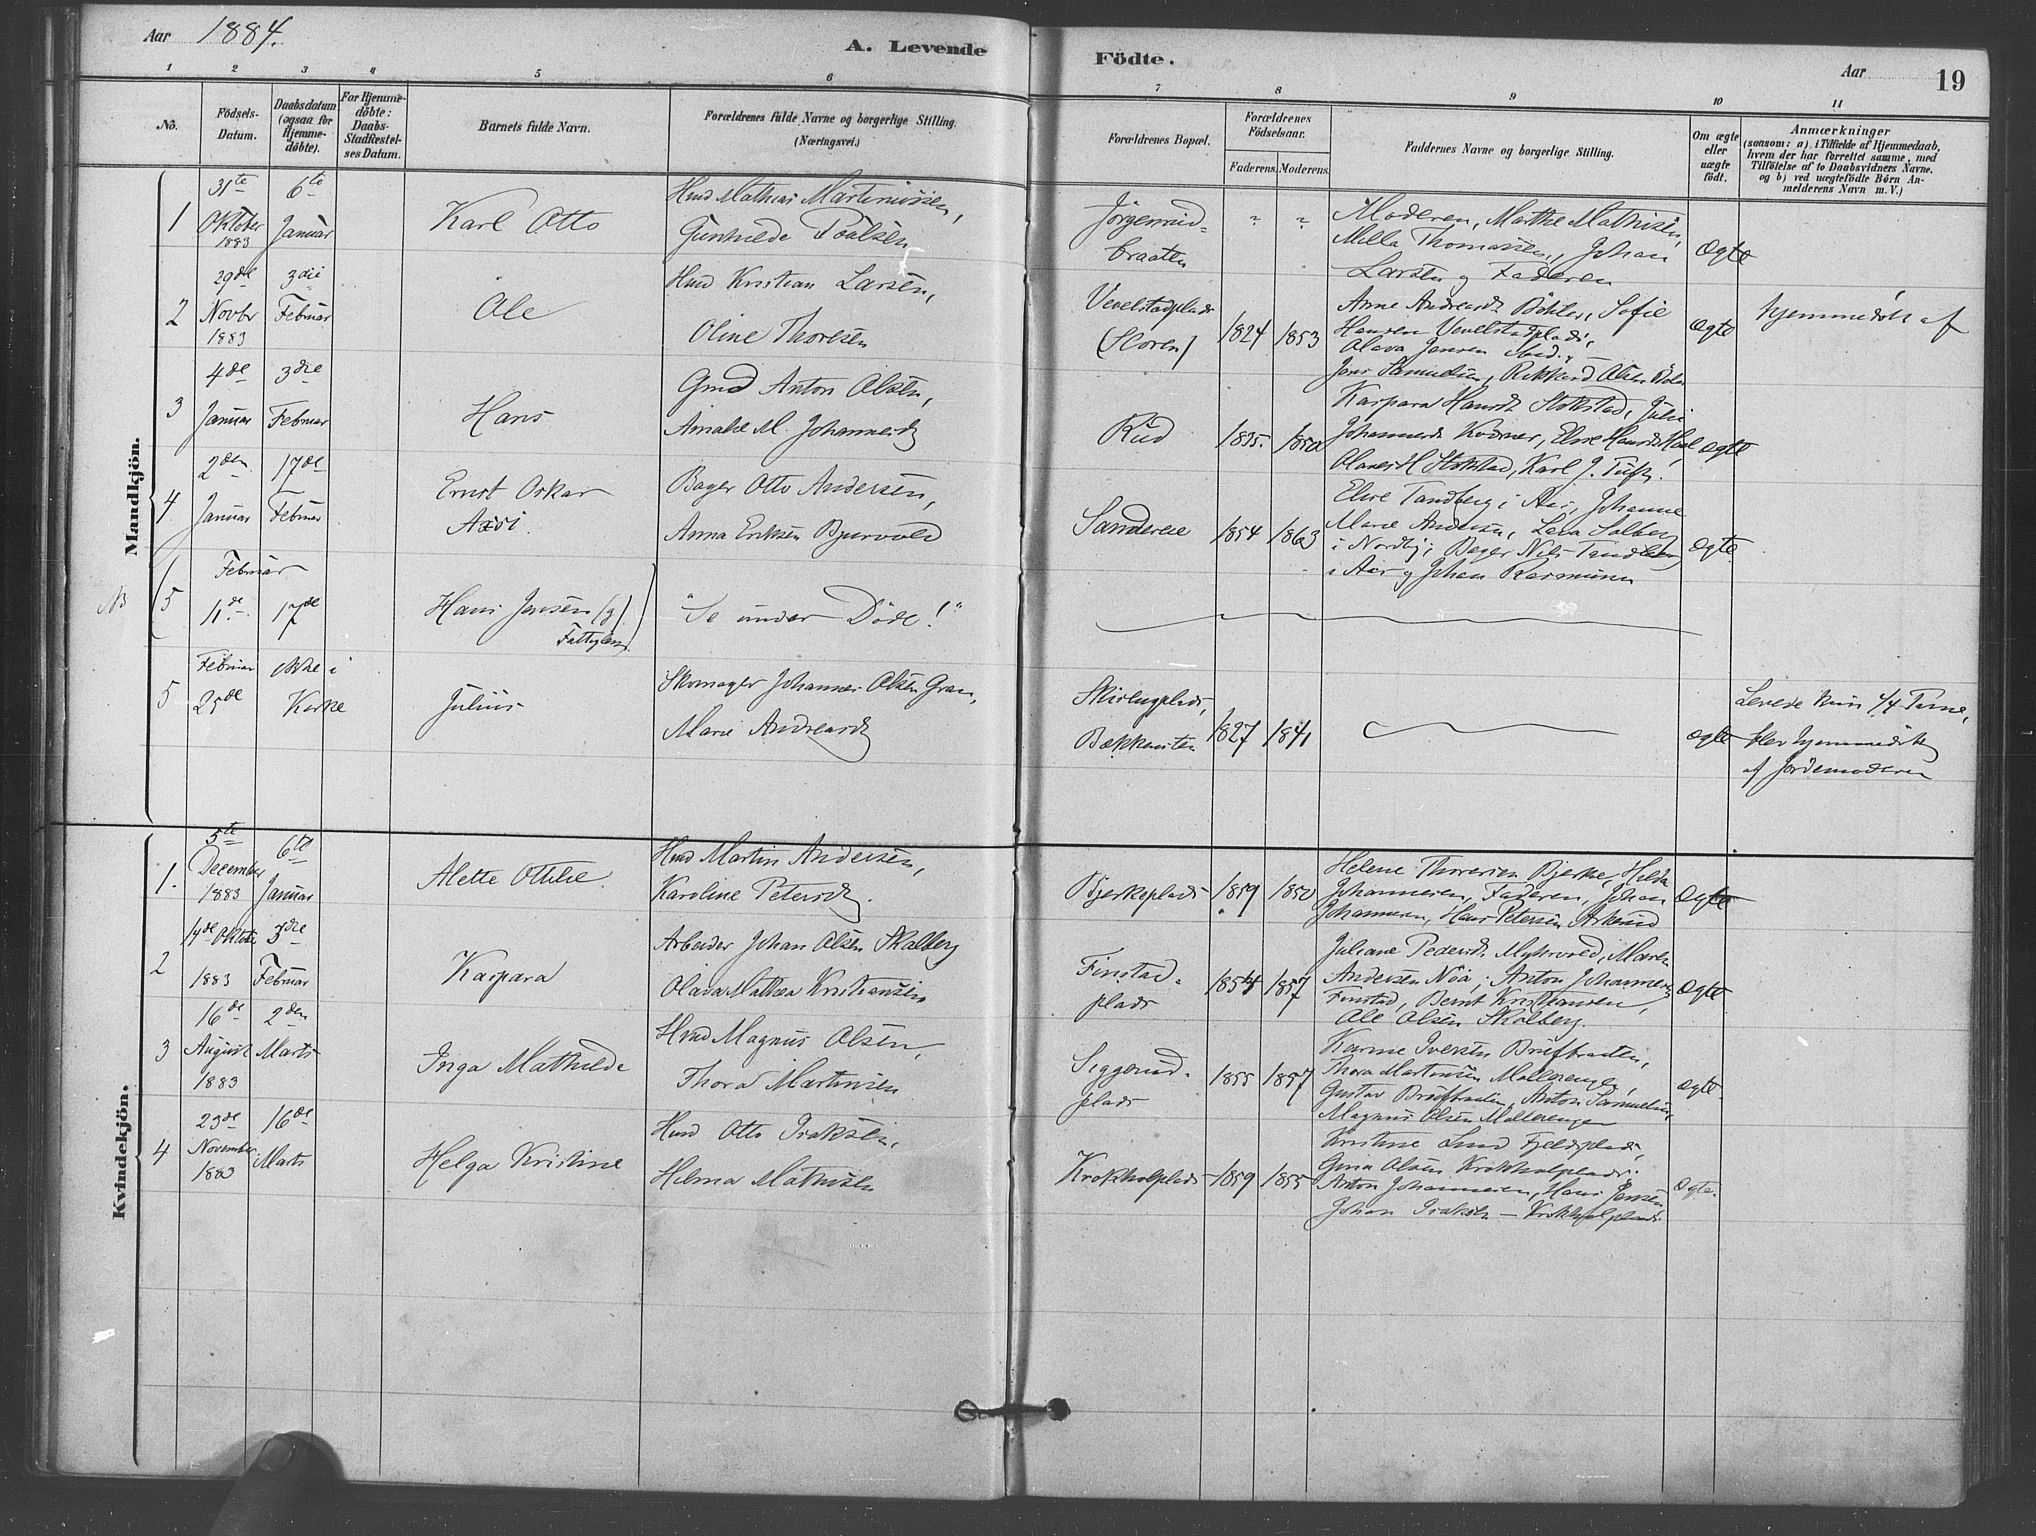 Aar 1884.
A. Levende Födte.
Aar
19
1 2 3 4 5 6 7 8 9 10 11
No.
Födsels-Datum.
Daabsdatum (ogsaa for Hjemme-döbte).
For Hjemme-döbte: Daabs-Stadfæstel-ses Datum.
Barnets fulde Navn.
Forældrenes fulde Navne og borgerlige Stilling. (Næringsvei.)
Forældrenes Bopæl.
Forældrenes Födselsaar.
Faderens. Moderens.
Faddernes Navne og borgerlige Stilling.
Om ægte eller uægte födt.
Anmærkninger
(saasom: a) i Tilfælde af Hjemmedaab, hvem der har forrettet samme, med Tilföielse af to Daabsvidners Navne. og b) ved uægtefödte Börn An-melderens Navn m. V.)
Mandkjön.
1
31te Oktober 1883
6te Januar
Karl Otto
Hmd Mathias Martinussen,
Gunhilde Poalsen
Jörgenrud-
braaten
" "
Moderen, Marthe Mathisen,
Milla Thomassen, Johan
Larsen og Faderen
Ægte
2
29de Novbr 1883
3die Februar
Ole
Hmd Kristian Larsen,
Oline Thoresen
Vevelstadplads
1824 1853
Anne Andreasdt Böhler, Sofie
Hansen Vevelstadplads,
Olava Jensen
Jens Samuelsen, Rikkard Olsen
Ægte
hjemmedöbt af
3
4de Januar
3die Februar
Hans
Gmd Anton Olsen,
Annahe M. Johannesdt
Rud
1835. 1850
Kaspara Hansdt Stokstad, Julie
Johannesdt, Elise Hansdt
Olaves H Stokstad, Karl J. Tuft.
Ægte
4
2den Januar
17de Februar
Ernst Oskar
Axsi.
Bager Otto Andersen,
Anna Eriksen Bjurvold
Sandereie
1854 1863
Elise Tandberg i Aas, Johanne
Marie Andersen, Lena Solberg
i Nordby; Bager Nils Tandberg
i Aas og Johan Rasmussen
Ægte
NB
5
Februar
11de 17de
Hans Jensen (g)
Fattiglem
"Se under Döde!"
5
Februar 25de
ikke i Kirke
Julius
Skomager Johannes Olsen Gran,
Marie Andreasdt
Bækkensten
1827 1841
Ægte
Levede kun 1/4 Time,
blev hjemmedöbt
af Jordemoderen
Kvindekjön.
1.
5te December 1883
6te Januar
Alette Otthilie.
Hmd Martin Andersen,
Karoline Petersdt.
Bjerkeplads
1859 1850
Helene Thoresen Bjerke, Hilda
Johannesen, Faderen, Johan
Johannesen, Hans Petersen Askerud
Ægte
2
14de Oktober 1883
3die Februar
Kaspara
Arbeider Johan Olsen Skalberg
Olava Mathea Kristiansen
Finstad-
plads
1854 1857
Juliane Pedersdt Myhrvold, Maren
Andersen Nöa; Anton Johannesen
Finstad, Bernt Kristiansen,
Ole Olsen Skalberg.
Ægte
3
16de August 1883
2den Marts
Inga Mathilde
Hmd Magnus Olsen,
Thora Martinsen
Siggerud-
plads
1855 1857
Karine Iversen Brüfbraaten,
Thora Martinsen Mallerengen,
Gustav Brüfbraaten, Anton Samuelsen,
Magnus Olsen Mallerengen
Ægte.
4
23de November 1883
16de Marts
Helga Kristine
Hmd Otto Isaksen,
Helma Mathisen
Krokholplads
1859 1855
Kristine Lund Fjeldplads,
Gina Olsen Krokholplads;
Anton Johannesen, Hans Jensen
Johan Isaksen — Krokholplads.
Ægte.